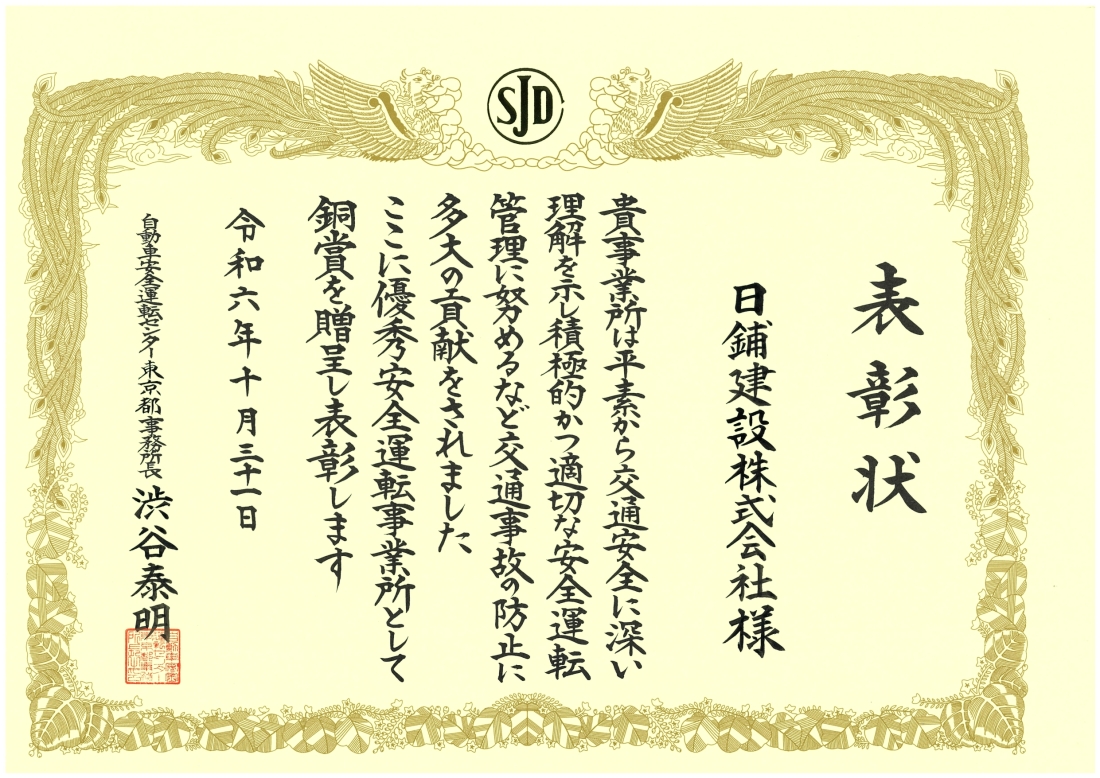 SJD
表彰状
日鋪建設株式会社様
貴事業所は平素から交通安全に深い
理解を示し積極的かつ適切な安全運転
管理に努めるなど交通事故の防止に
多大の貢献をされました
ここに優秀安全運転事業所として
銅賞を贈呈し表彰します
令和六年十月三十一日
自動車安全運転センター東京都事務所長 渋谷泰明